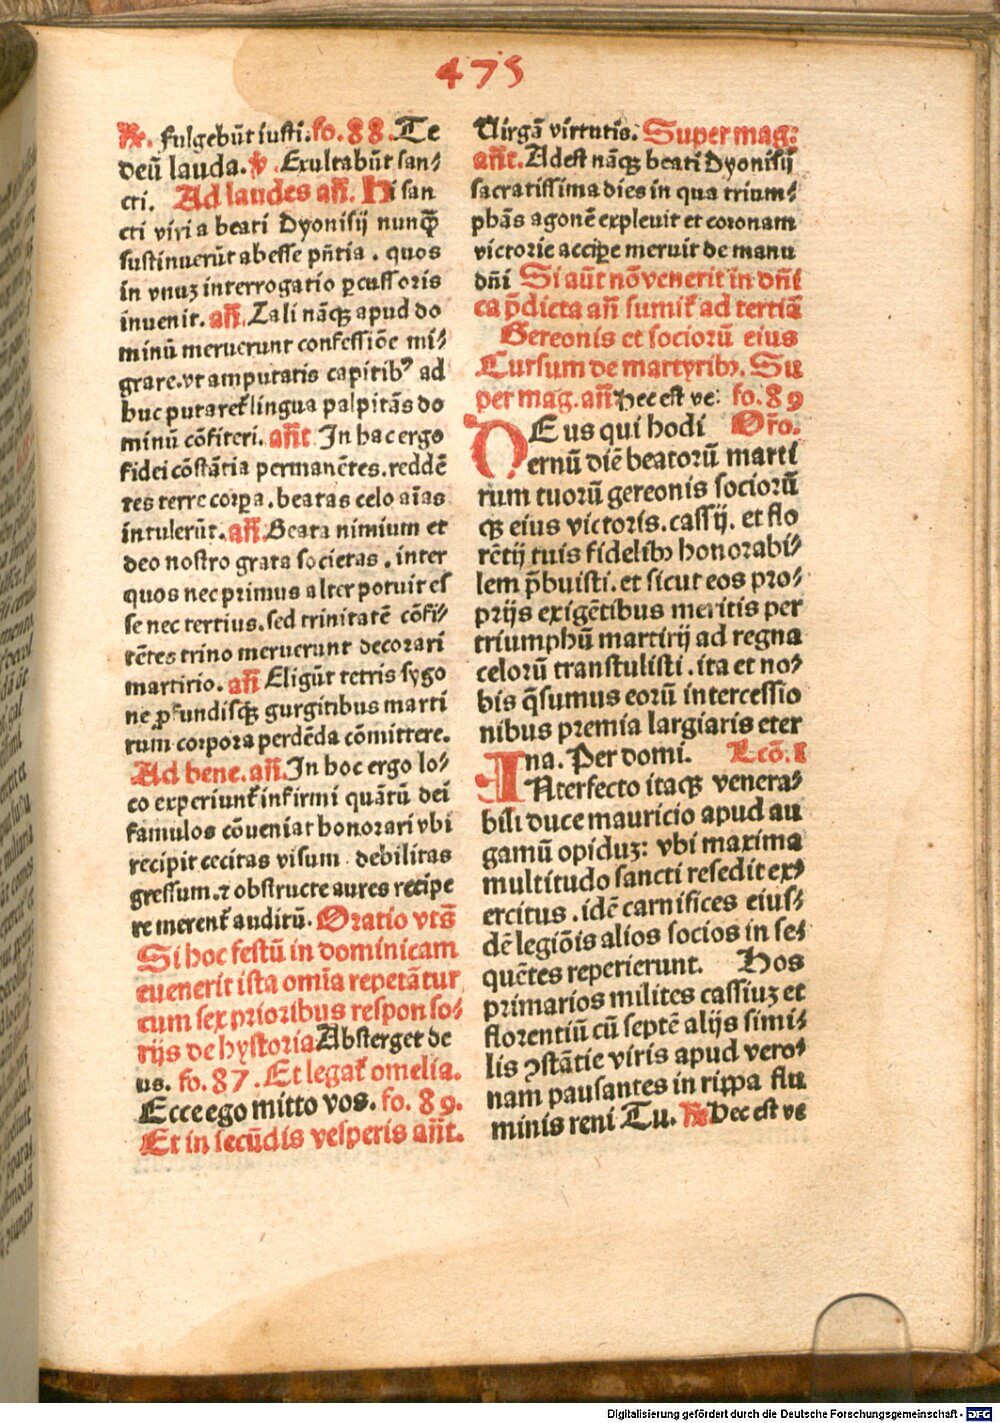 475
℟. fulgebūt iusti. fo. 88. Te
deū lauda. ℣. Exultabūt san⸗
cti. Ad laudes añ. Hi san
cti viri a beati Dyonisij nunq̄
sustinuerūt abesse pn̄tia . quos
in vnuʒ interrogatio ꝑcussoris
inuenit. añ. Tali nāqꝫ apud do
minū meruerunt confessiōe mi⸗
grare. vt amputatis capitibꝰ ad
huc putaret᷑ lingua palpitās do
minū cōfiteri. añt. In hac ergo
fidei cōstātia permanētes. reddē
tes terre corpa. beatas celo aīas
intulerūt. añ. Beata nimium et
deo nostro grata societas . inter
quos nec primus alter potuit es
se nec tertius. sed trinitatē cōfi⸗
tētes trino meruerunt decorari
martirio. añ Eligūt tetris sygo
ne ꝓfundisqꝫ gurgitibus marti
rum corpora perdēda cōmittere.
Ad bene. añ. In hoc ergo lo⸗
co experiunt᷑ infirmi quātū dei
famulos cōueniat honorari vbi
recipit cecitas visum . debilitas
gressum. ⁊ obstructe aures recipe
re merent᷑ auditū. Oratio vts̄
Si hoc festū in dominicam
euenerit ista omīa repetātur
cum sex prioribus responso⸗
rijs de hystoria Absterget de
us. fo. 87 . Et legat᷑ omelia.
Ecce ego mitto vos. fo. 89.
Et in secūdis vesperis añt.
Uirgā virtutis. Super mag:
añt. Adest nāqꝫ beati Dyonisij
sacratissima dies in qua trium⸗
phās agonē expleuit et coronam
victorie accipe meruit de manu
dn̄i Si aūt nō venerit in dn̄i
ca p̄dicta añ sumit᷑ ad tertiā
Gereonis et sociorū eius
Cursum de martyribꝫ. Su
per mag. añ Hec est ve: fo. 89
DEus qui hodi Orō.
ernū diē beatorū marti
rum tuorū gereonis sociorū
qꝫ eius victoris. cassij. et flo
rētij tuis fidelibꝫ honorabi⸗
lem p̄buisti. et sicut eos pro⸗
prijs exigētibus meritis per
triumphū martirij ad regna
celorū transtulisti . ita et no⸗
bis q̄sumus eorū intercessio
nibus premia largiaris eter
na. Per domi. Lcō. I
INterfecto itaqꝫ venera⸗
bili duce mauricio apud au
gamū opiduʒ: vbi maxima
multitudo sancti resedit ex⸗
ercitus . idē carnifices eius⸗
dē legiōis alios socios in se⸗
quētes reperierunt. Hos
primarios milites cassiuʒ et
florentiū cū septē alijs simi⸗
lis ꝯstātie viris apud vero⸗
nam pausantes in rippa flu
minis reni Tu. ℟ Hec est ve
Digitalisierung gefördert durch die Deutsche Forschungsgemeinschaft - DFG